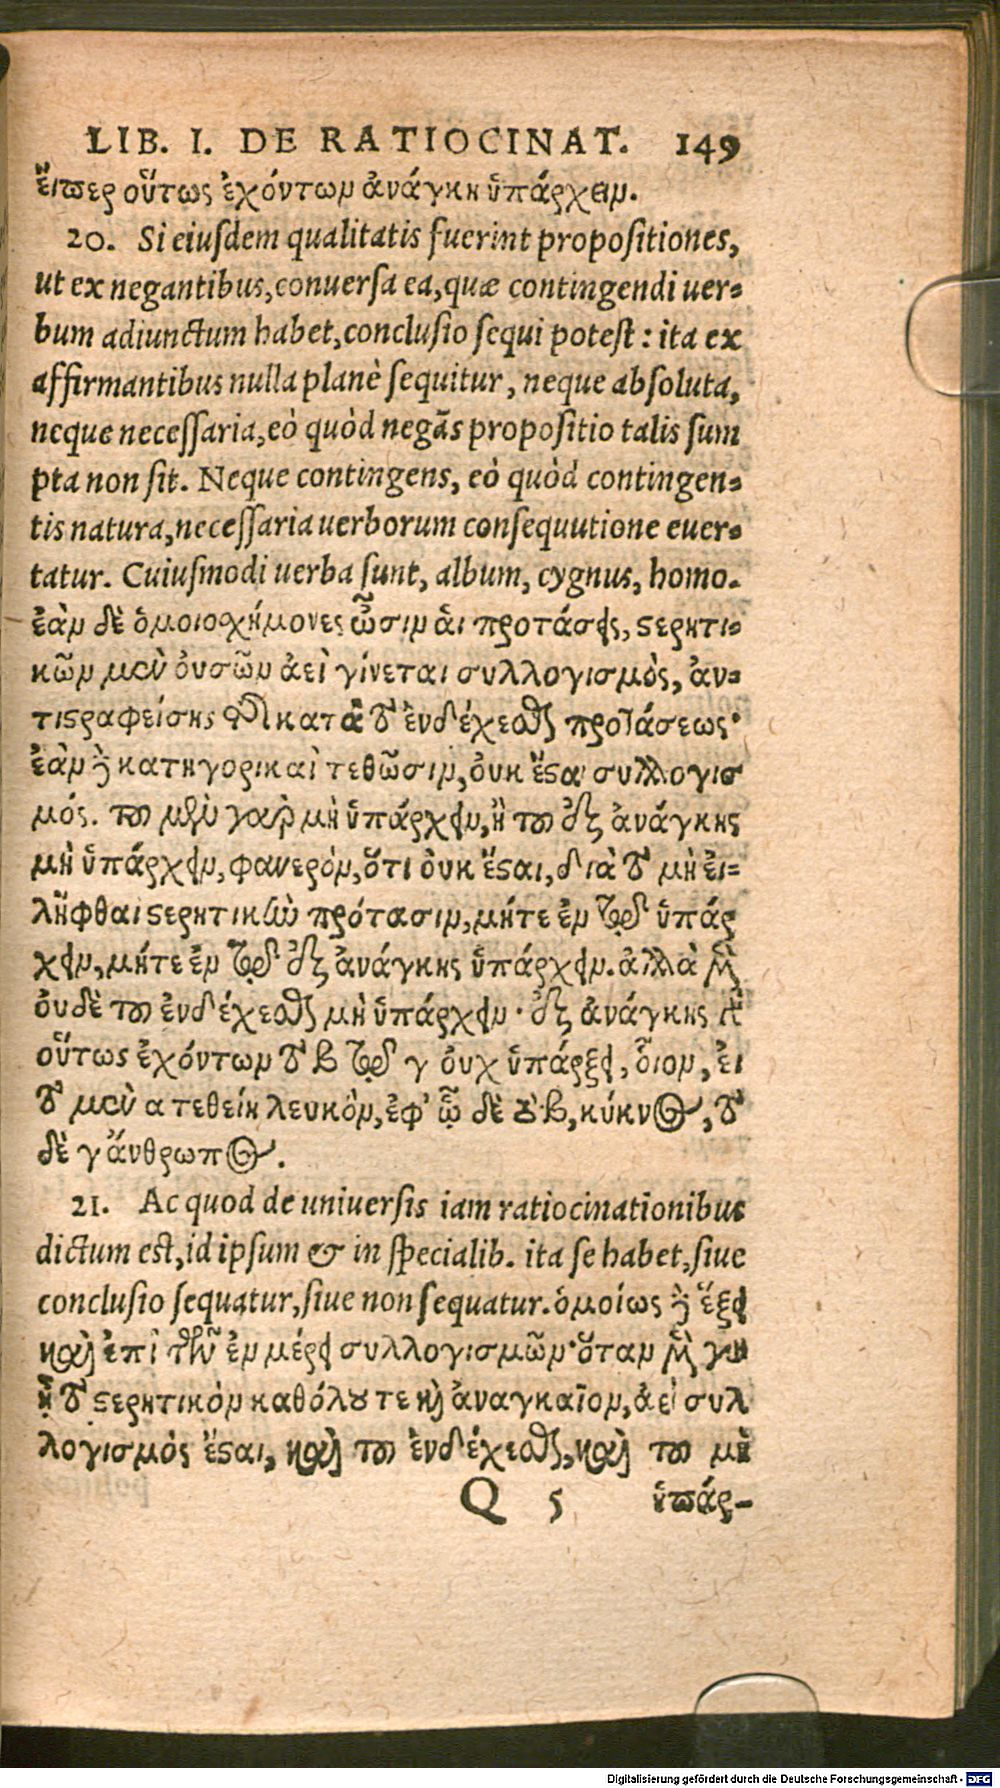 LIB. I. DE RATIOCINAT. 149
εἴπερ οὕτως ἐχόντων ἀνάγκη ὑπάρχειν.
20. Si eiusdem qualitatis fuerint propositiones,
ut ex negantibus, conuersa ea, quæ contingendi uer-
bum adiunctum habet, conclusio sequi potest: ita ex
affirmantibus nulla planè sequitur, neque absoluta,
neque necessaria, eò quòd negãs propositio talis sum
pta non sit. Neque contingens, eò quòd contingen-
tis natura, necessaria uerborum consequutione euer-
tatur. Cuiusmodi uerba sunt, album, cygnus, homo.
ἐὰν δὲ ὁμοιοσχήμονες ὦσιν ἁι προτάσεις, στερητι-
κῶν μὲν ὀυσῶν ἀεὶ γίνεται συλλογισμὸς, ἀν-
τιστραφείσης τῆς κατὰ τὸ ἐνδέχεσθαι προτάσεως·
ἐὰν δὲ κατηγορικαὶ τεθῶσιν, ὀυκ ἔσται συλλογισ
μός. τοῦ μὲν γὰρ μὴ ὑπάρχειν, ἢ τοῦ ἐξ ἀνάγκης
μὴ ὑπάρχειν, φανερὸν, ὅτι ὀυκ ἔσται, διὰ τὸ μὴ ἐι-
λῆφθαι στερητικὴν πρότασιν, μήτε ἐν τῷ ὑπάρ
χειν, μήτε ἐν τῷ ἐξ ἀνάγκης ὑπάρχειν. ἀλλὰ μὴν
ὀυδὲ τοῦ ἐνδέχεσθαι μὴ ὑπάρχειν· ἐξ ἀνάγκης γὰρ
οὕτως ἐχόντων τὸ β τῷ γ ὀυχ ὑπάρξει, ὅιον, ἐι
τὸ μὲν α τεθείη λευκὸν, ἐφ' ᾧ δὲ τὸ β, κύκνος, τὸ
δὲ γ ἄνθρωπος.
21. Ac quod de uniuersis iam ratiocinationibus
dictum est, id ipsum & in specialib. ita se habet, siue
conclusio sequatur, siue non sequatur. ὁμοίως δὲ ἕξει
καὶ ἐπὶ τῶν ἐν μέρει συλλογισμῶν· ὅταν μὲν γὰρ
ᾖ τὸ στερητικὸν καθόλου τε καὶ ἀναγκαῖον, ἀεὶ συλ
λογισμὸς ἔσται, καὶ τοῦ ἐνδέχεσθαι, καὶ τοῦ μὴ
Q 5 ὑπάρ-
Digitalisierung gefördert durch die Deutsche Forschungsgemeinschaft - DFG